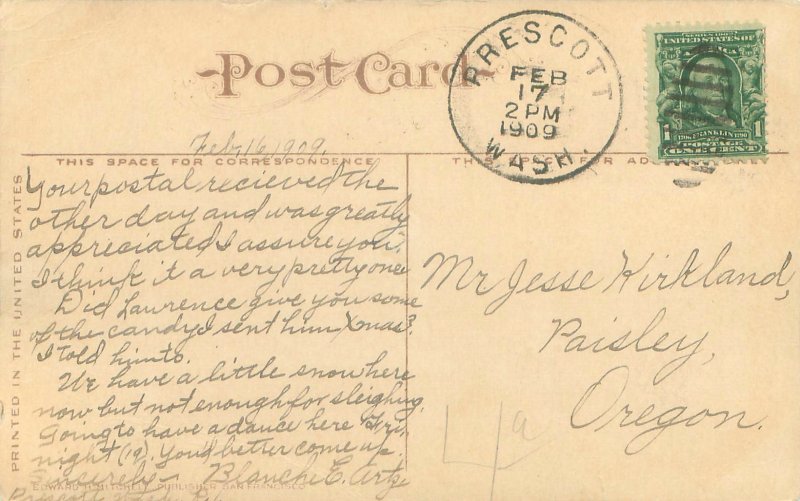 Post Card
PRESCOTT
FEB
17
2 PM
1909
WASH.
SERIES 1902
UNITED STATES OF
1 FRANKLIN 1
POSTAGE
ONE CENT
Feb, 16, 1909.
THIS SPACE FOR CORRESPONDENCE
THIS SPACE FOR AD
PRINTED IN THE UNITED STATES
Your postal recieved the
other day and was greatly
appreciated I assure you.
I think it a very pretty one
Did Lawrence give you some
of the candy I sent him Xmas?
I told him to.
We have a little snow here
now but not enough for sleighing.
Going to have a dance here Fri.
night (19). You'd better come up.
Sincerely - Blanche E. Artz
Prescott,
EDWARD H. MITCHELL, PUBLISHER, SAN FRANCISCO
Mr Jesse Kirkland,
Paisley,
Oregon.
4a